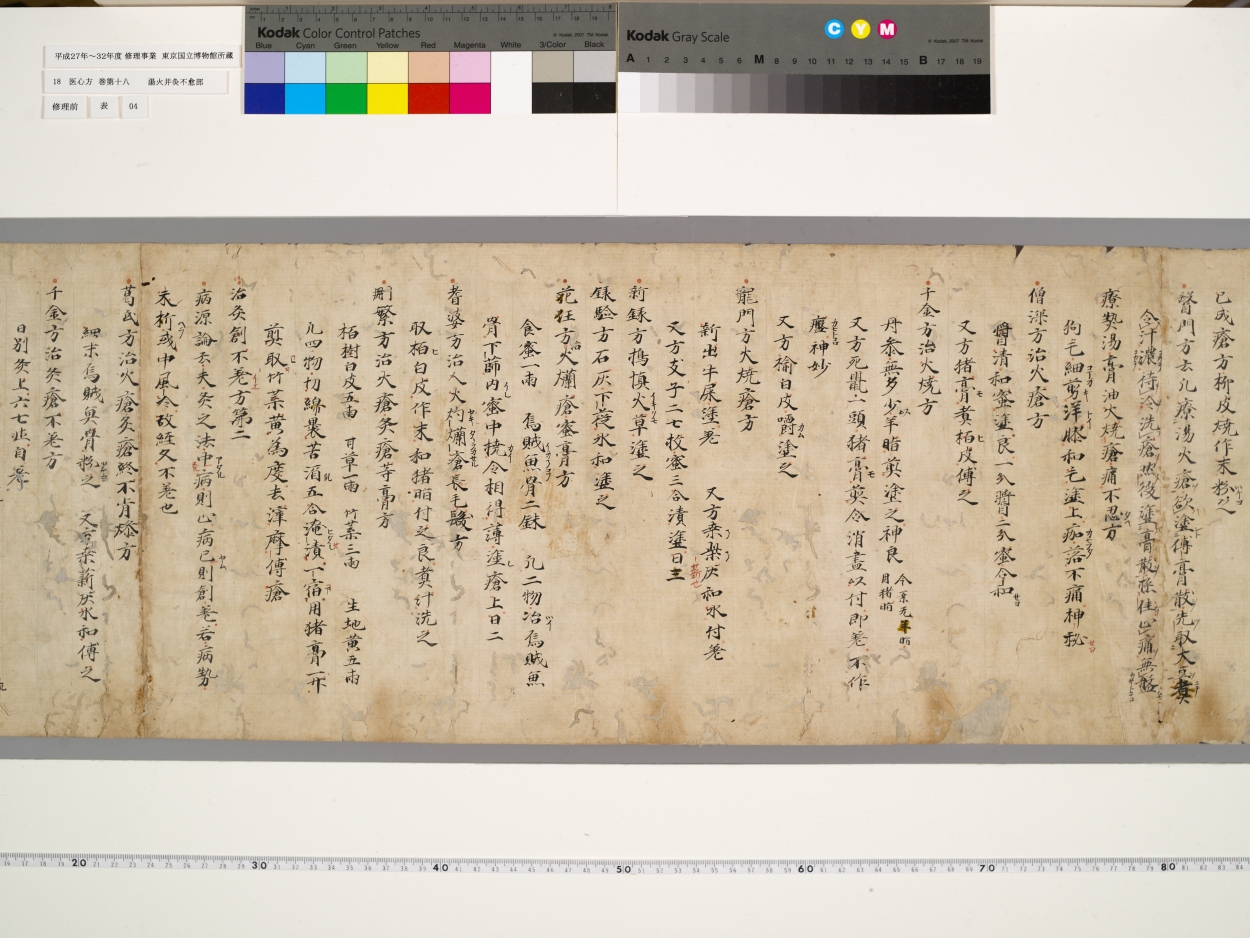 平成27年～32年度 修理事業 東京国立博物館所蔵
18 医心方 巻第十八 湯火并灸不愈部
修理前 表 04
Kodak Color Control Patches
© Kodak, 2007 TM: Kodak
Blue Cyan Green Yellow Red Magenta White 3/Color Black
Kodak Gray Scale
C Y M
© Kodak, 2007 TM: Kodak
A 1 2 3 4 5 6 M 8 9 10 11 12 13 14 15 B 17 18 19
已成瘡方柳皮焼作末粉之
醫門方云凡療湯火瘡欲塗傅膏散先取大豆煮
令汁濃待冷洗瘡然後塗膏散極佳止痛無瘢
療熱湯膏油火焼瘡痛不忍方
狗毛細剪洋膠和毛塗上痂落不痛神秘
僧深方治火瘡方
醤清和蜜塗良一分醤二分蜜令和
又方猪膏煮柏皮傅之
千金方治火焼方
丹参無多少以羊脂煎塗之神良 今案无羊脂用猪脂
又方死鼠一頭猪膏煎令消盡以付即差不作
瘢神妙
又方榆白皮嚼塗之
龍門方火焼瘡方
新出牛屎塗差 又方桑柴灰和水付差
又方支子二七枚蜜三合漬塗日三
新録方搗慎火草塗之
録驗方石灰下篩水和塗之
范汪方治火爛瘡蜜膏方
食蜜一兩 烏賊魚骨二銖 凡二物冶烏賊魚
骨下篩内蜜中撓令相得薄塗瘡上日二
耆婆方治人火灼爛瘡長毛髮方
取柏白皮作末和猪脂付之良煮汁洗之
刪繁方治火瘡灸瘡等膏方
柏樹白皮五兩 甘草一兩 竹葉三兩 生地黄五兩
凡四物切綿裹苦酒五合淹漬一宿用猪膏一升
煎取竹葉黄為度去滓摩傅瘡
治灸創不差方第二
病源論云夫灸之法中病則止病已則創差若病勢
未折或中風冷故経久不差也
葛氏方治火瘡灸瘡終不肯燥方
細末烏賊魚骨粉之 又方桑薪灰水和傅之
千金方治灸瘡不差方
日別灸上六七壯自差
20 30 40 50 60 70 80